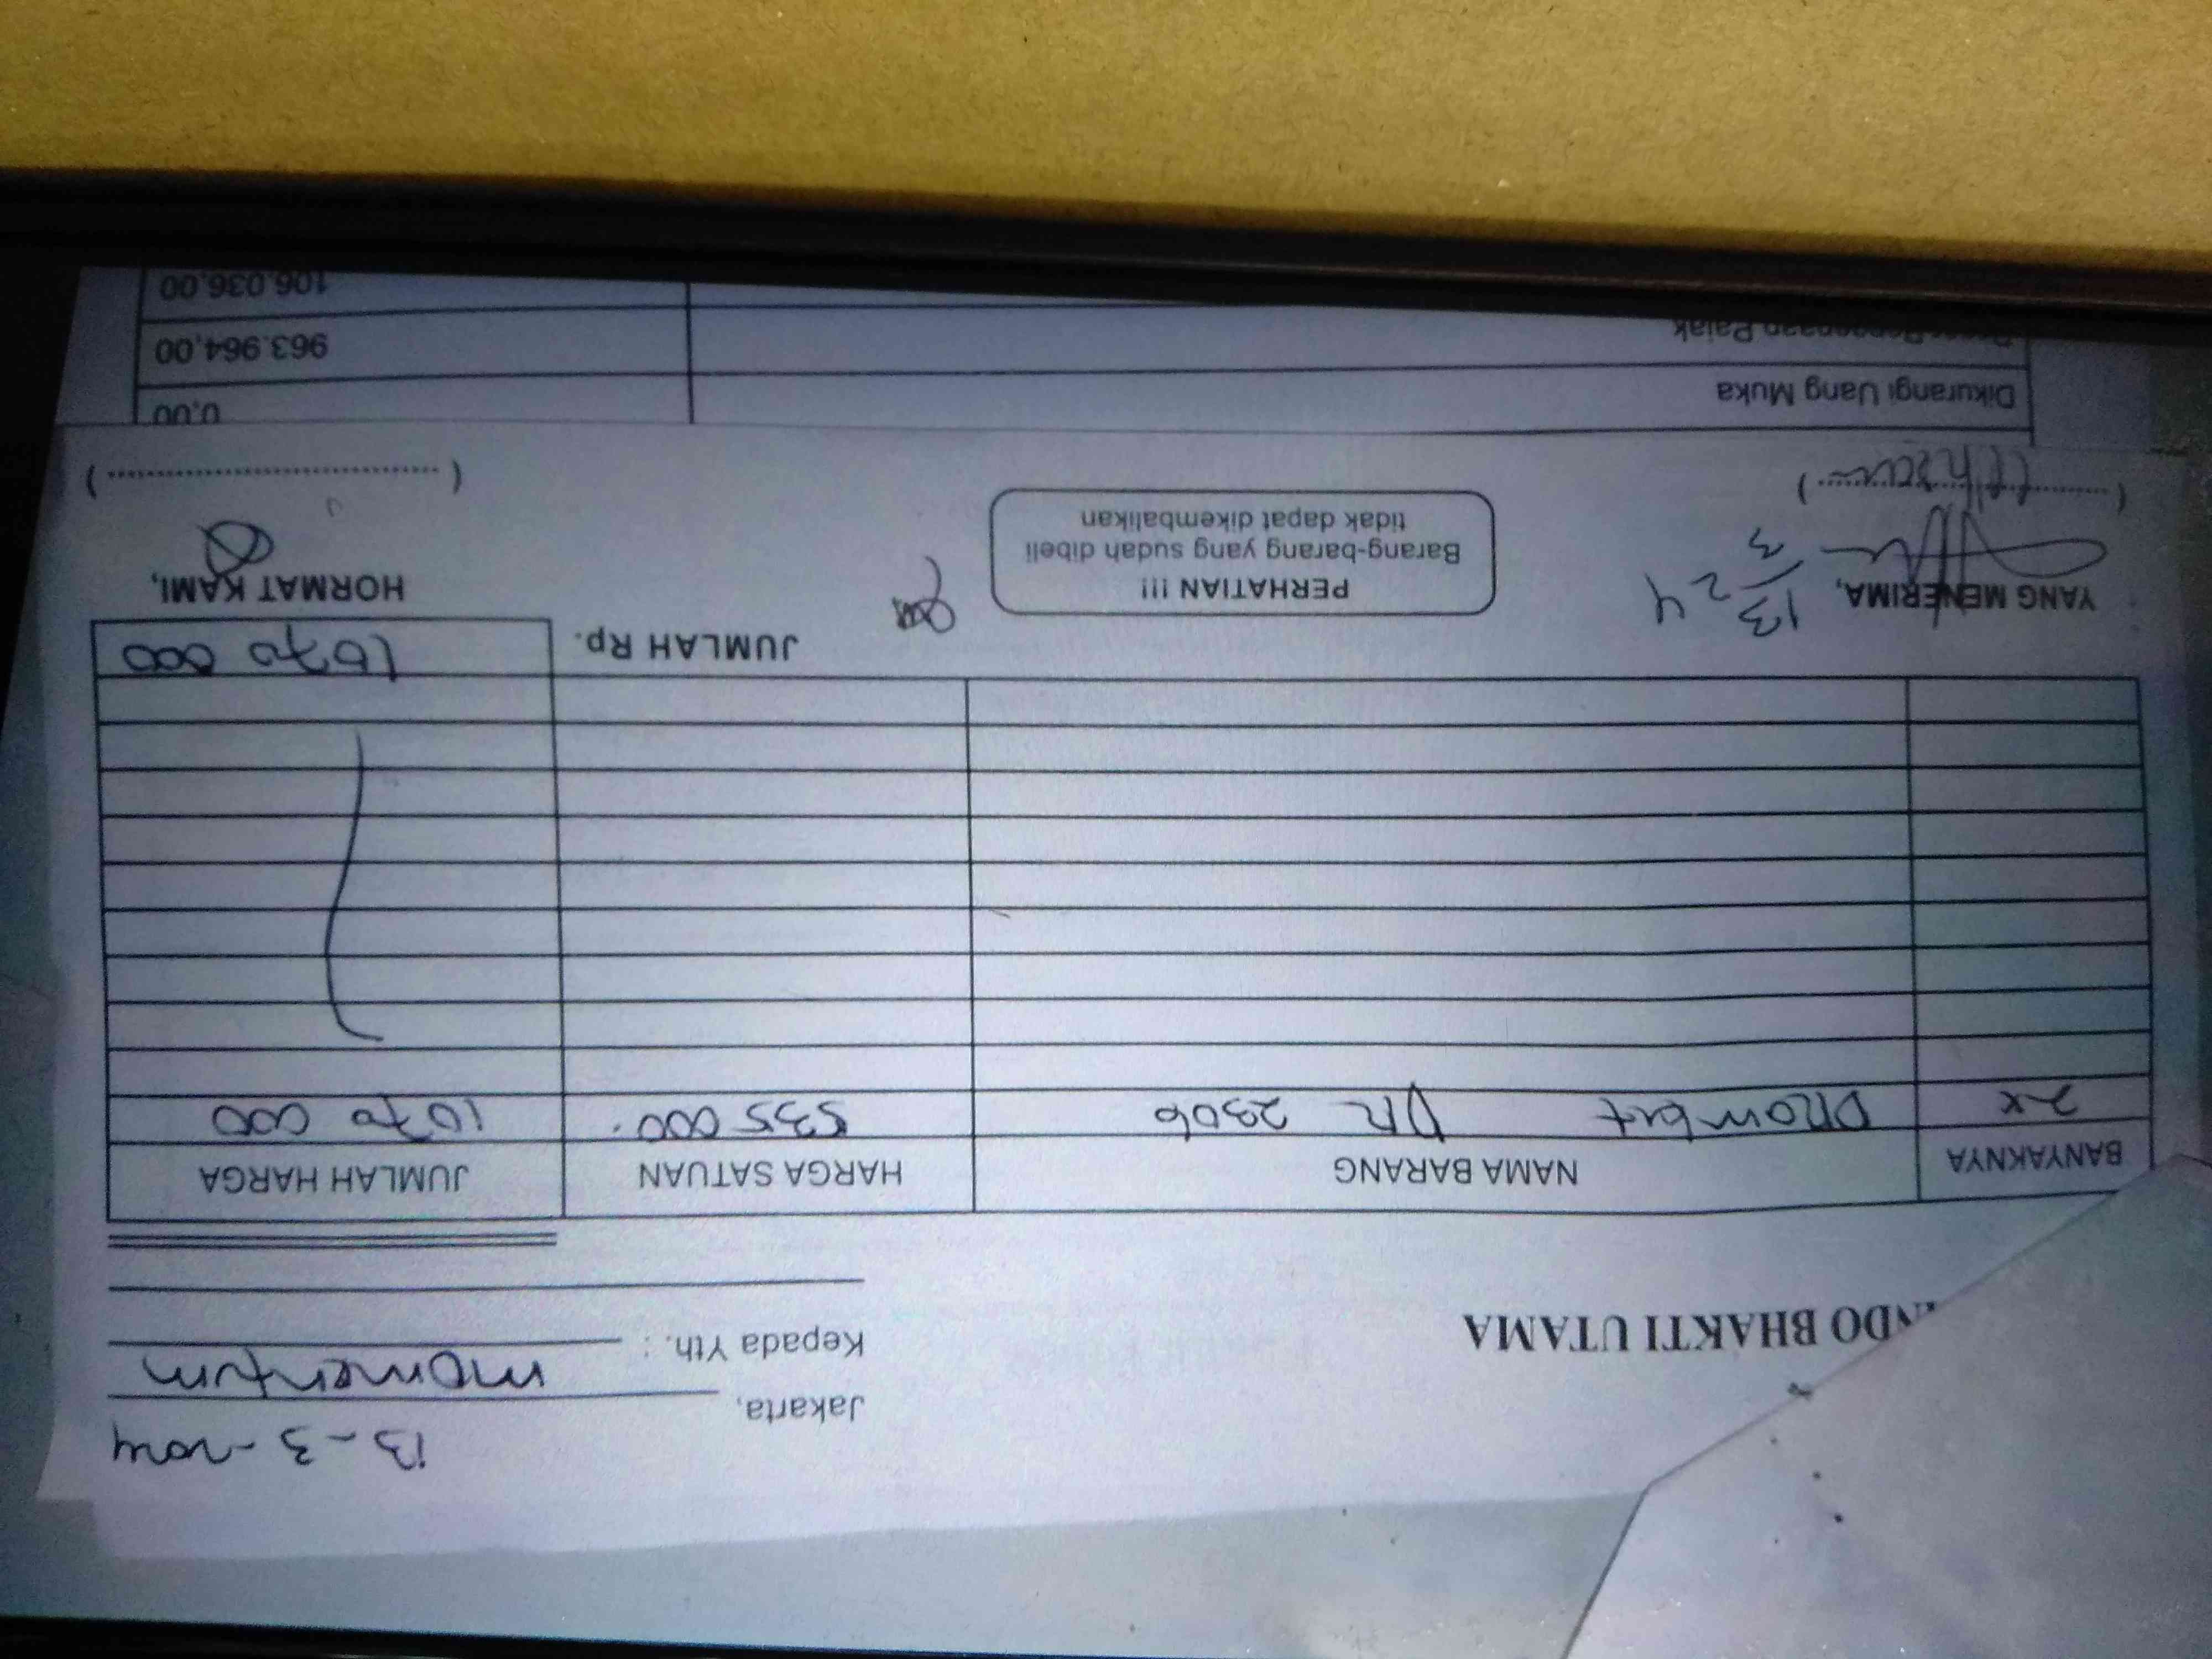 13-3-2024
Jakarta,
momentum
Kepada Yth. :
NDO BHAKTI UTAMA
BANYAKNYA NAMA BARANG HARGA SATUAN JUMLAH HARGA
2x Drumbest DR 2306 535 000. 1070 000
JUMLAH Rp. 1070 000
YANG MENERIMA, 13/3 24
PERHATIAN !!!
Barang-barang yang sudah dibeli
tidak dapat dikembalikan
HORMAT KAMI,
(..............................) (..............................)
Dikurangi Uang Muka 0,00
Dasar Pengenaan Pajak 963.964,00
106.036,00